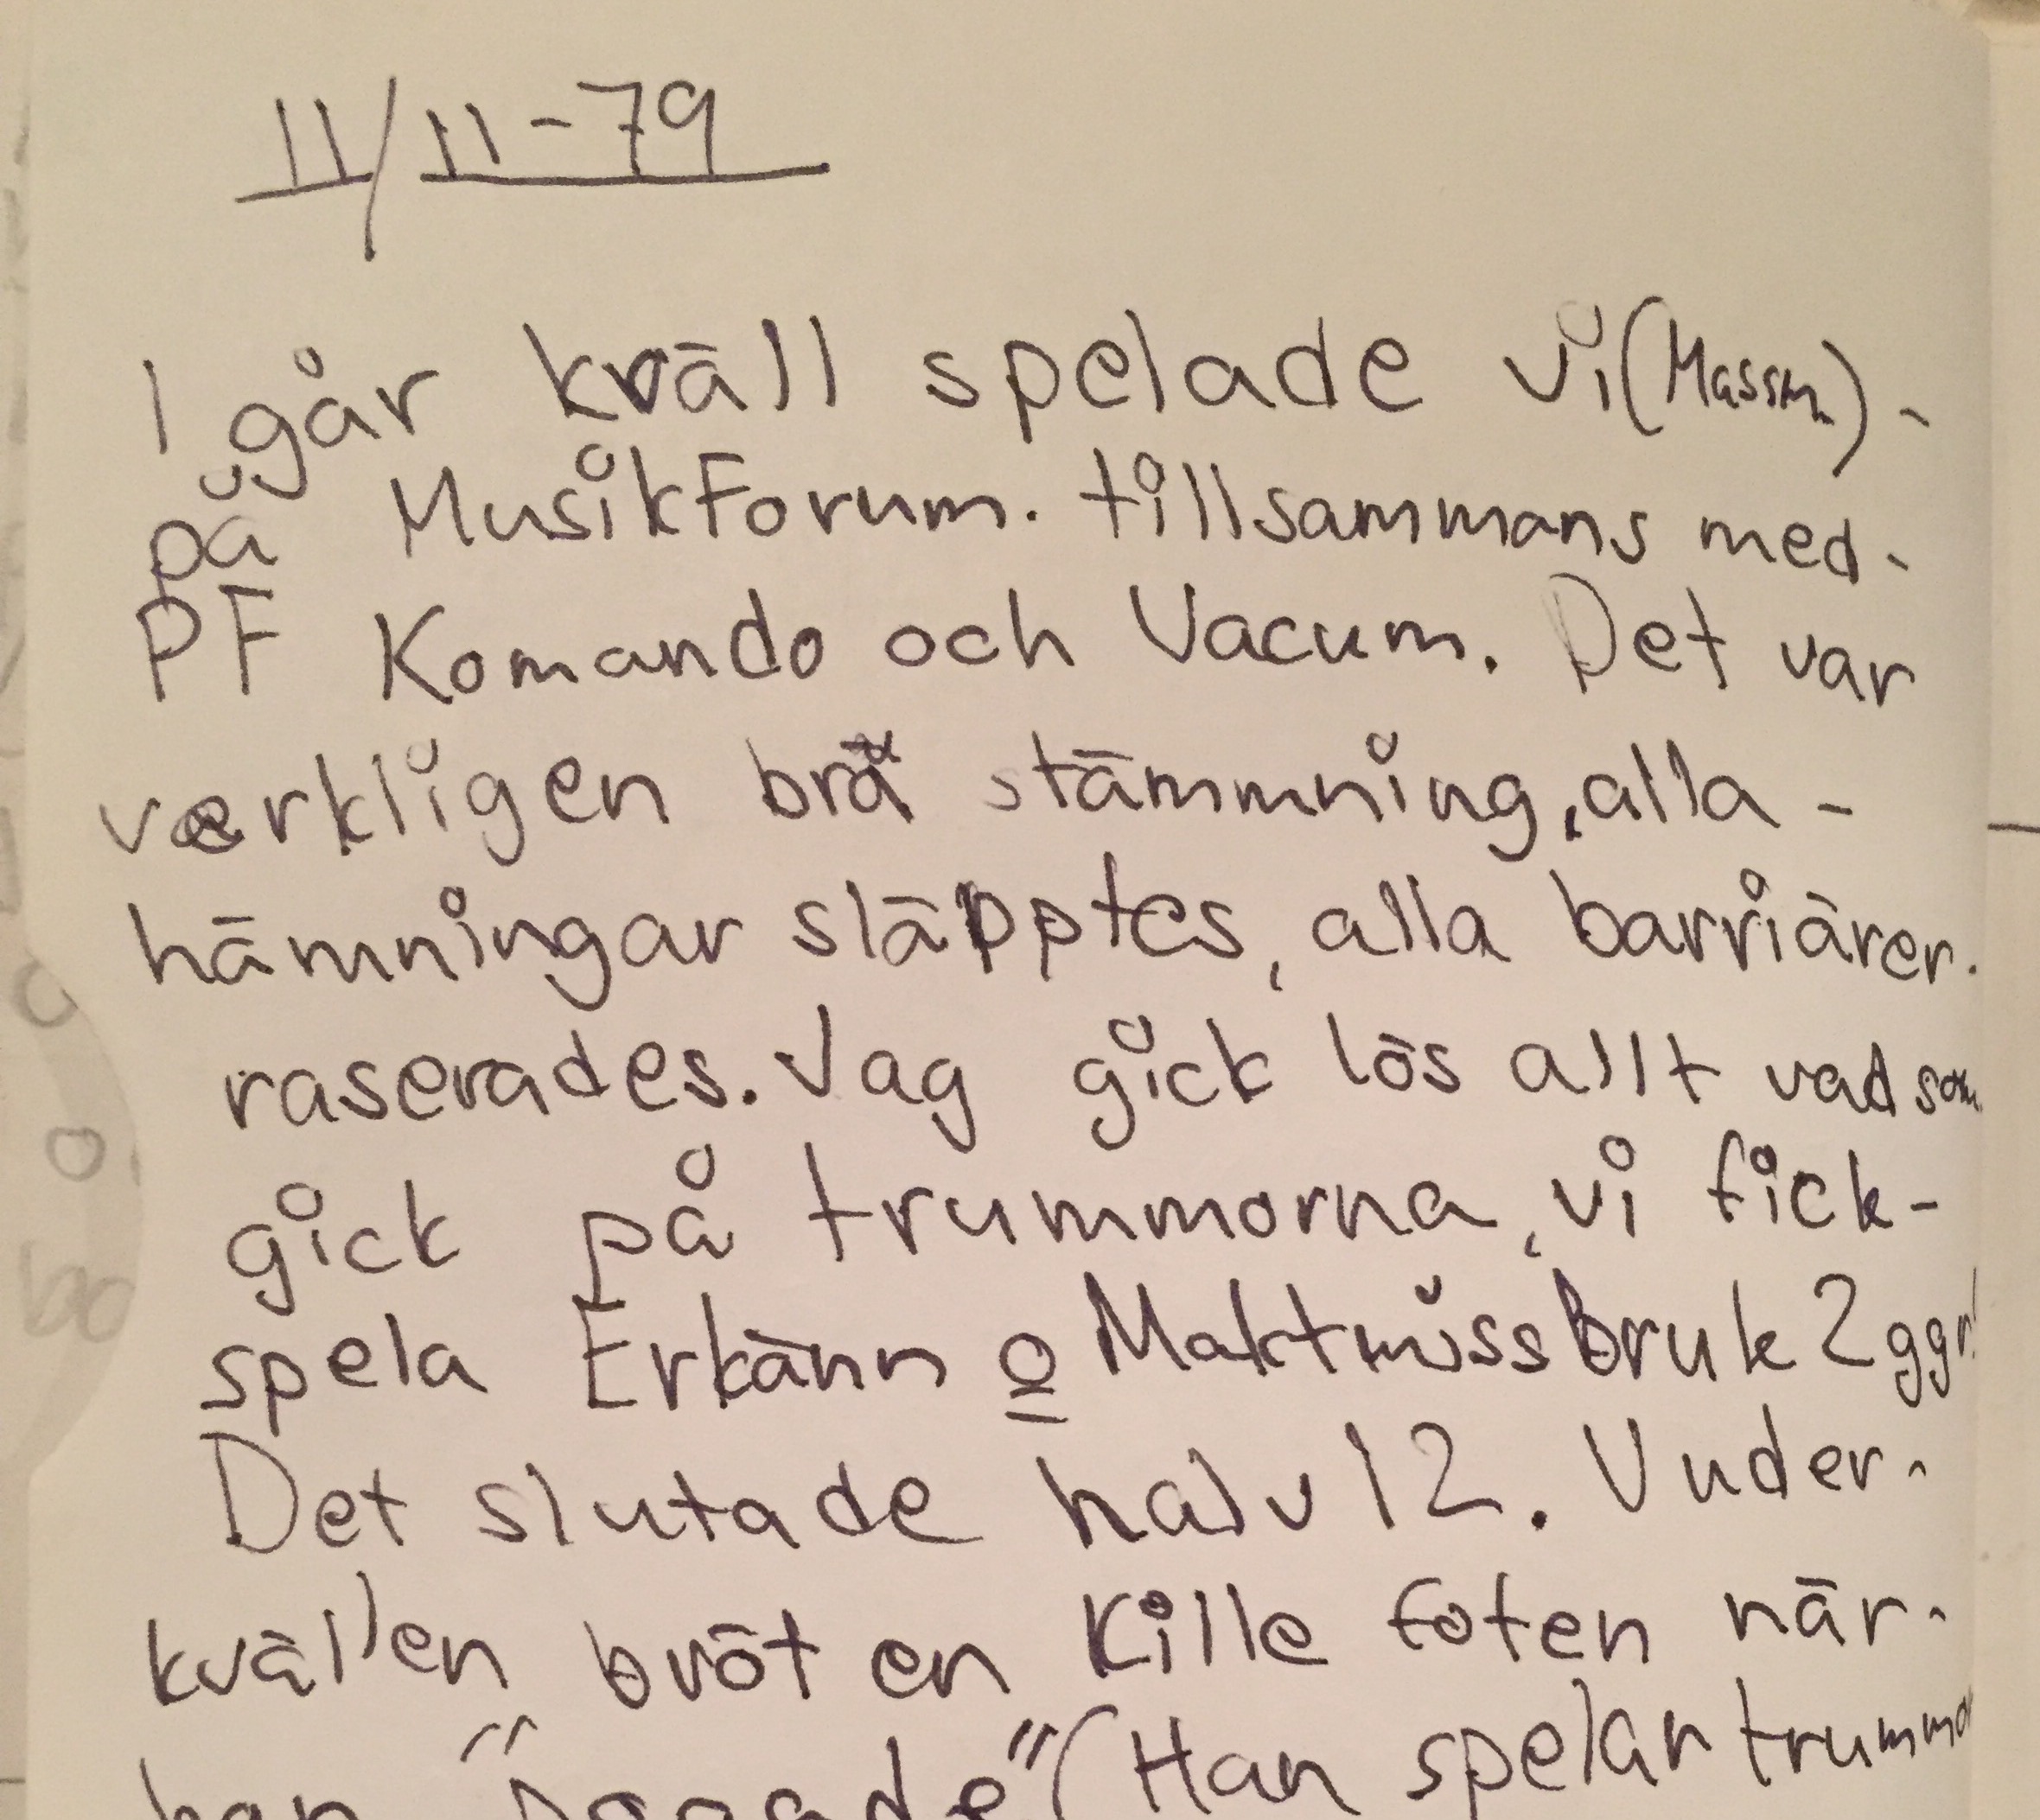 11/11-79
I går kväll spelade vi (Massm.)-
på MusikForum. tillsammans med-
PF Komando och Vacum. Det var
verkligen bra stämmning, alla -
hämningar släpptes, alla barriärer.
raserades. Jag gick lös allt vad som
gick på trummorna, vi fick-
spela Erkänn o Maktmissbruk 2 ggr!
Det slutade halv 12. Under-
kvällen bröt en kille foten när-
han (Han spelar trummo